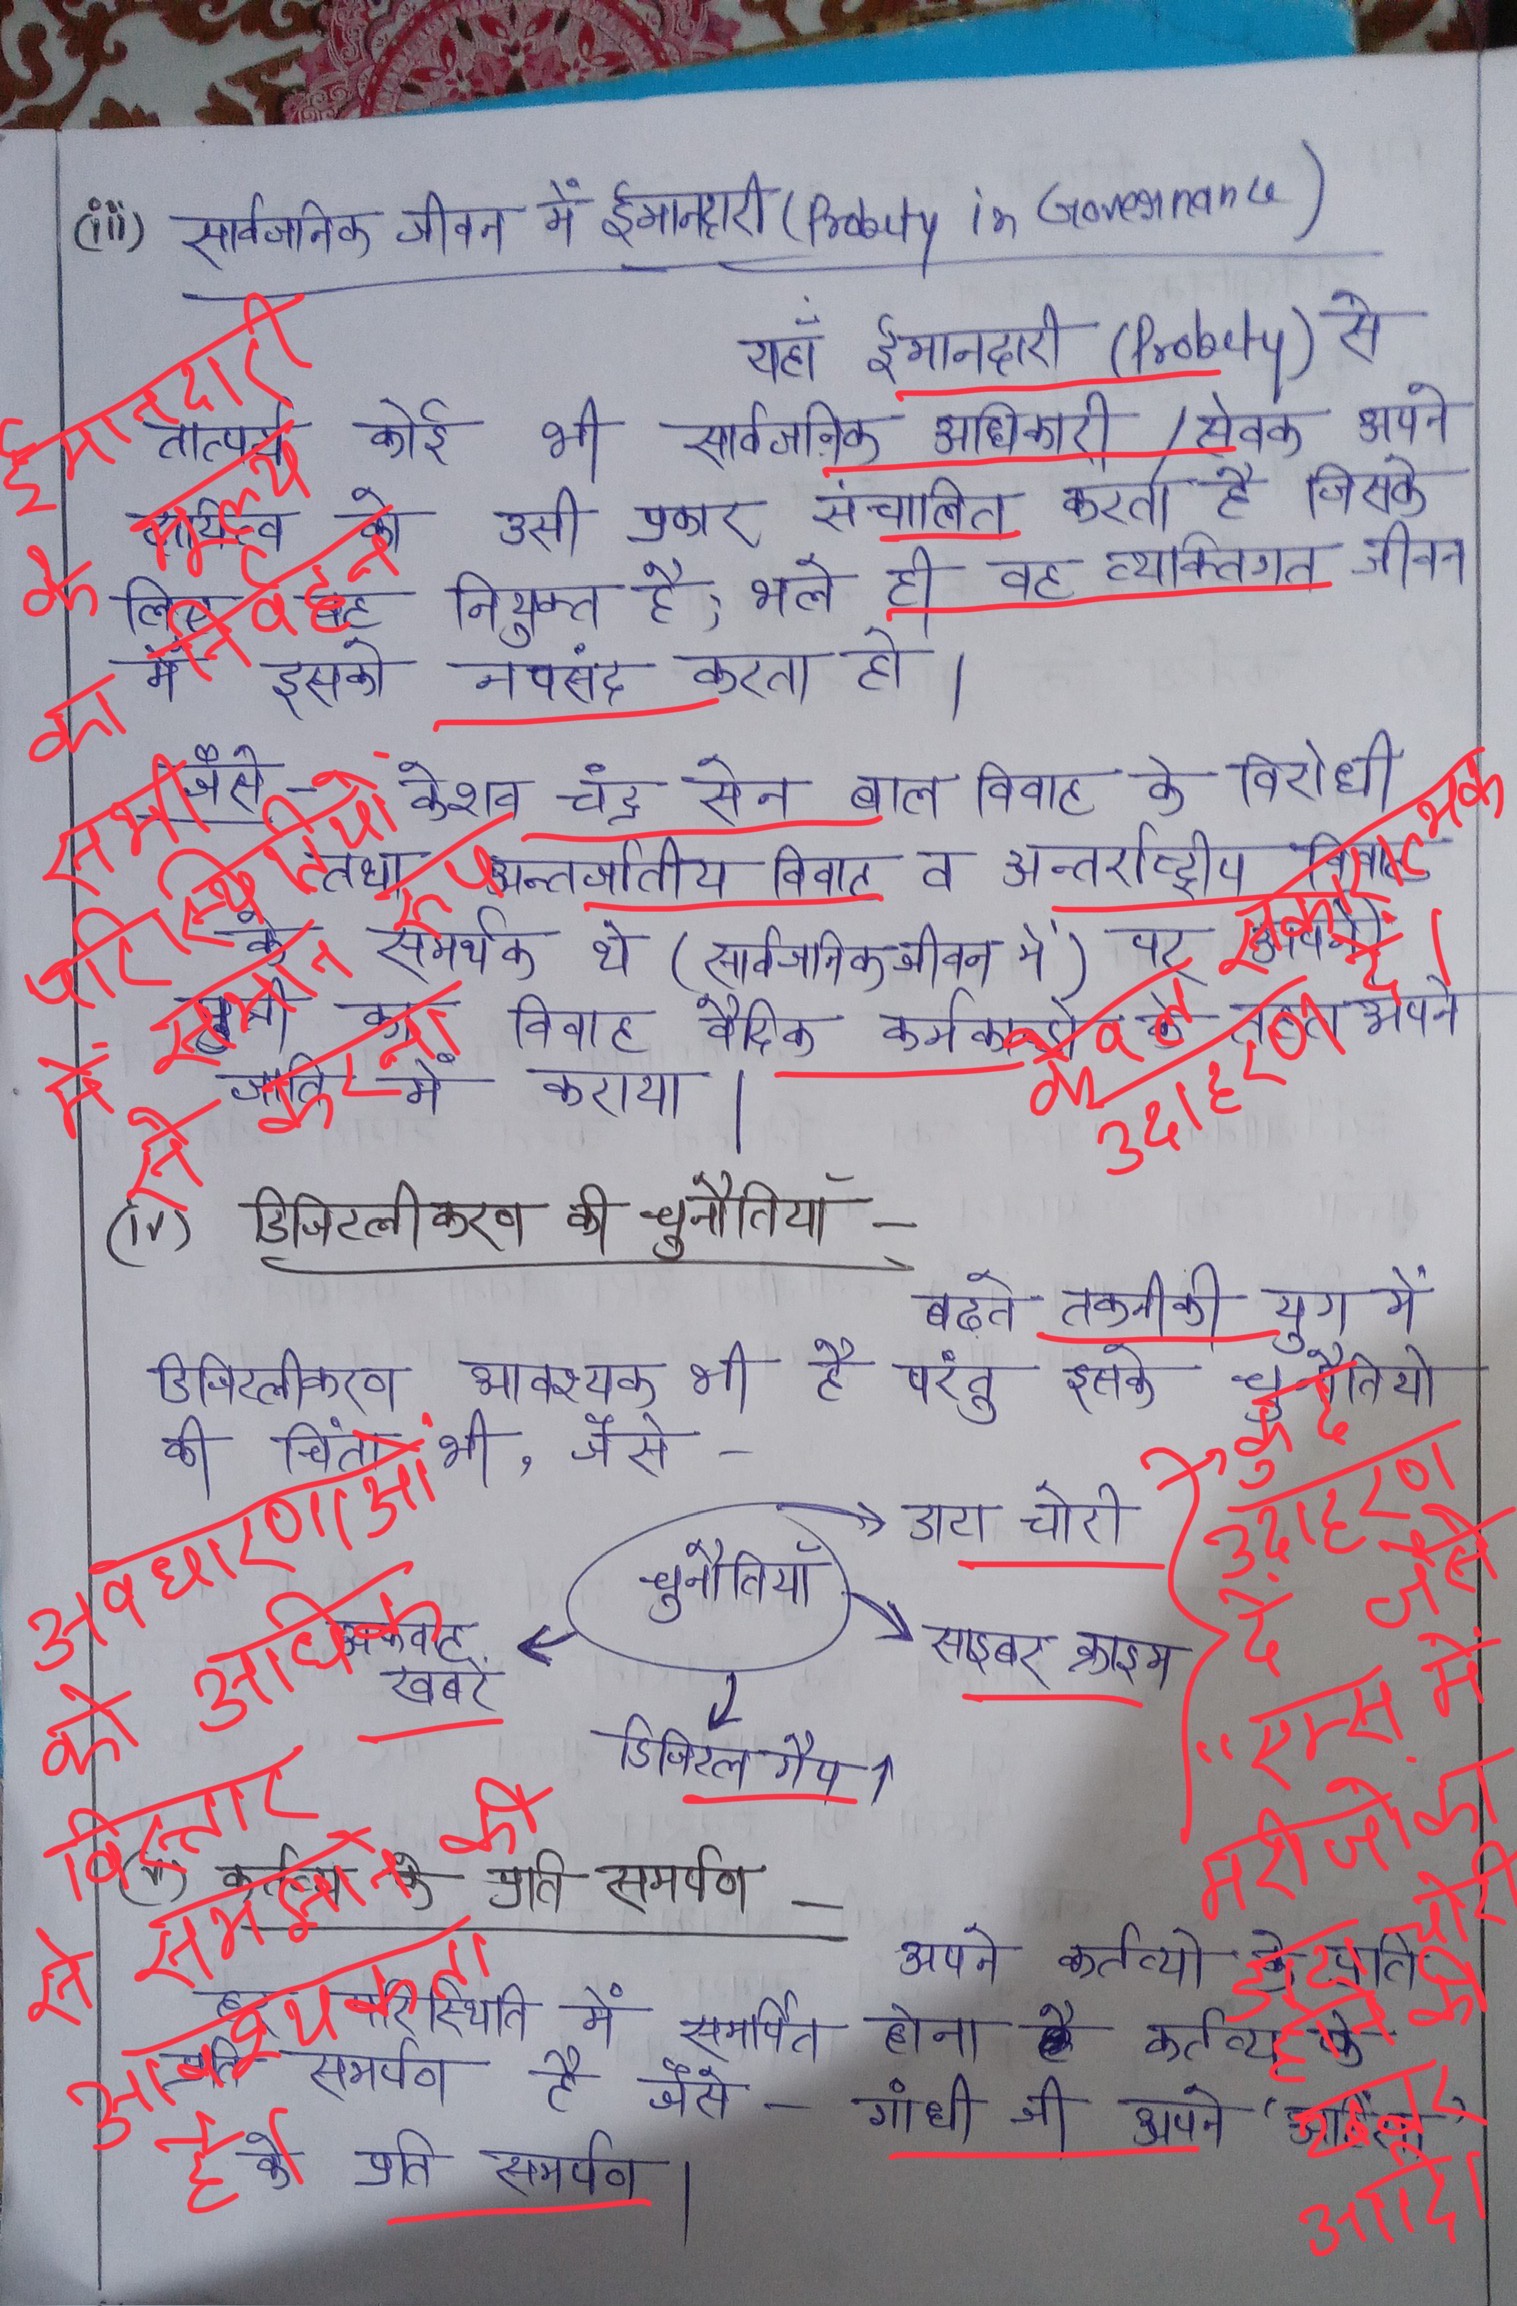 (iii) सार्वजनिक जीवन में ईमानदारी (Probity in Governance)
यहाँ ईमानदारी (Probity) से
तात्पर्य कोई भी सार्वजनिक अधिकारी / सेवक अपने
को उसी प्रकार संचालित करता है जिसके
लिए वह नियुक्त है, भले ही वह व्यक्तिगत जीवन
में इसको नपसंद करता हो।
जैसे- केशव चंद्र सेन बाल विवाह के विरोधी
तथा अन्तर्जातीय विवाह व अन्तर्राष्ट्रीय विवाह
के समर्थक थे (सार्वजनिक जीवन में) पर अपनी
का विवाह वैदिक कर्मकाण्डो के तहत अपने
जाति में कराया।
ईमानदारी
के मूल्य
का निर्वहन
सभी
परिस्थितियों
में समान रूप
से करना
केवल सकारात्मक
उदाहरण दें।
(iv) डिजिटलीकरण की चुनौतियाँ –
बढ़ते तकनीकी युग में
डिजिटलीकरण आवश्यक भी है परंतु इसके चुनौतियो
की चिंता भी, जैसे –
चुनौतियाँ
डाटा चोरी
साइबर क्राइम
डिजिटल गैप ↑
अफवाह
खबरें
कुछ
उदाहरण
दें जैसे
"एम्स में
मरीजों का
डाटा चोरी
होने की
खबर
आदि।
अवधारणाओं
को अधिक
विस्तार
से समझाने की
आवश्यकता
है
(v) कर्तव्य के प्रति समर्पण –
अपने कर्तव्यो के प्रति
हर परिस्थिति में समर्पित होना है कर्तव्य के
प्रति समर्पण है जैसे – गांधी जी अपने 'अहिंसा'
के प्रति समर्पण।